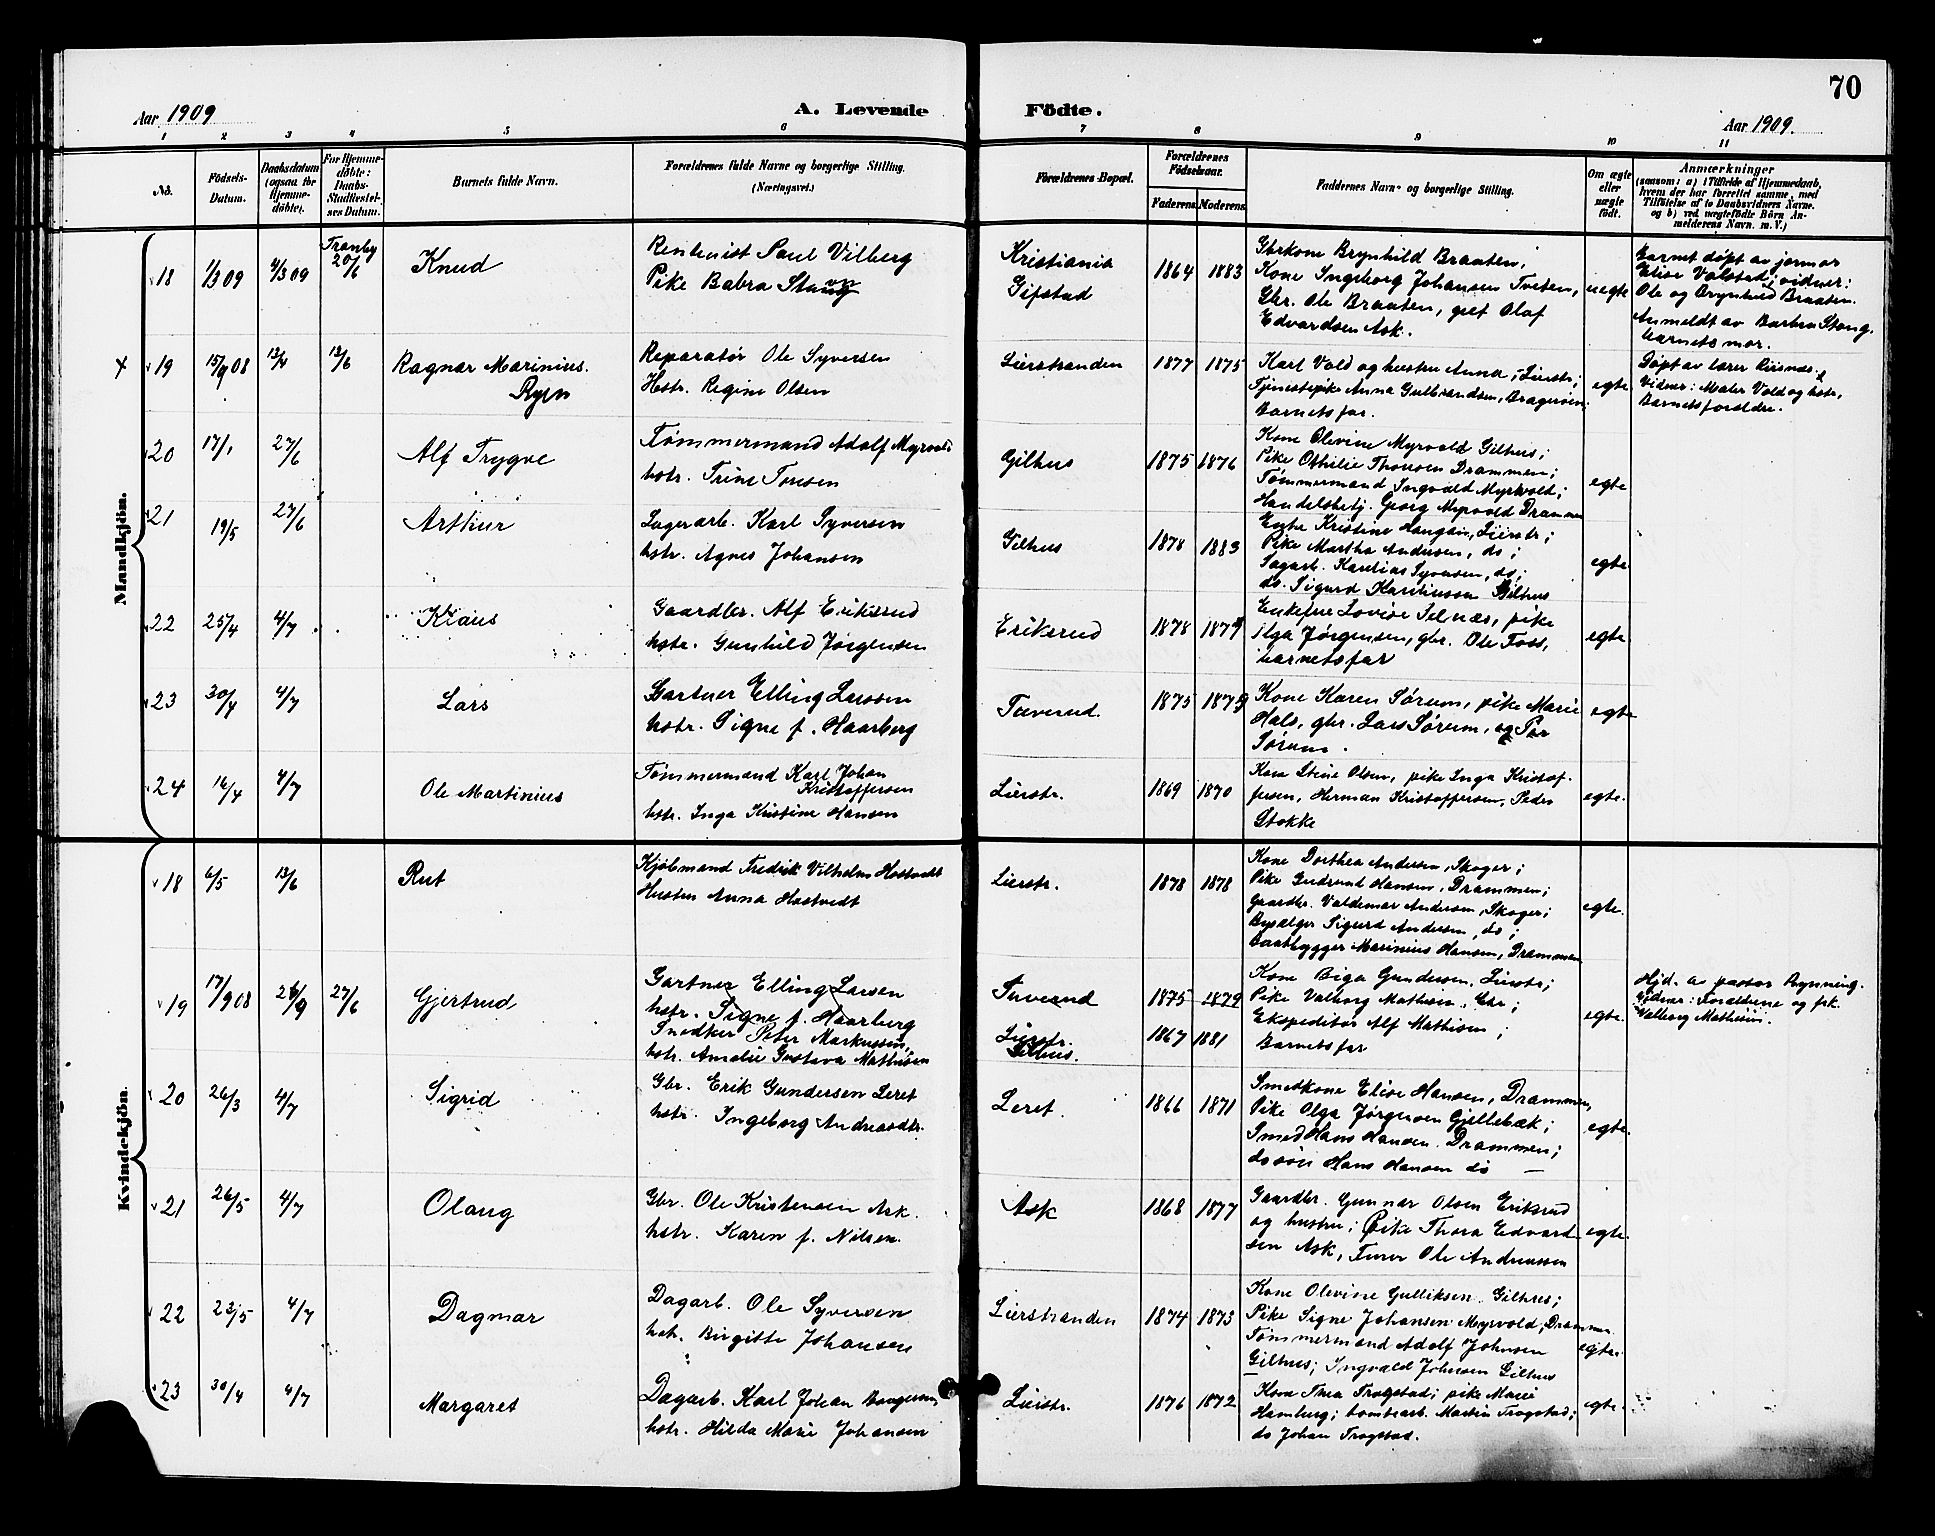 70
Aar 1909
A. Levende
Födte.
Aar 1909.
1 2 3 4 5 6 7 8 9 10 11
No.
Födsels-Datum.
Daabsdatum (ogsaa for Hjemme-döbte).
For Hjemme-döbte: Daabs-Stadfæstel-ses Datum.
Barnets fulde Navn.
Forældrenes fulde Navne og borgerlige Stilling. (Næringsvei.)
Forældrenes Bopæl.
Forældrenes Födselsaar.
Faderens Moderens
Faddernes Navne og borgerlige Stilling.
Om ægte eller uægte födt.
Anmærkninger
(saasom: a) i Tilfælde af Hjemmedaab,
hvem der har forrettet samme, med
Tilföielse af to Daabsvidners Navne.
og b) ved uægtefödte Börn An-
melderens Navn. m. V.)
Mandkjön.
18 1/3 09 4/3 09 Tranby 20/6 Knud
Rentenist Paul Vilberg
Pike Babra Stang
Kristiania
Gifstad
1864 1883
Gbrkone Brynhild Braaten,
Kone Ingeborg Johansen Tveten,
Gbr. Ole Braaten, gut Olaf
Edvardsen Ask.
uegte
Barnet døpt av jormor
Elise Valstad; vidner:
Ole og Brynhild Braaten.
Anmeldt av Barbra Stang,
barnets mor.
19 15/9 08 13/4 13/6 Ragnar Marinius.
Ryen
Reparatør Ole Syversen
Hstr. Regine Olsen
Lierstranden
1877 1875
Karl Vold og hustru Anna, Lierstr;
Tjenestepike Anna Gulbrandsen, Bragerøen;
Barnets far.
egte
Døpt av lærer Riisnæs.
Vidner: Maler Vold og hstr,
Barnets forældre.
20 17/1 27/6 Alf Trygve
Tømmermand Adolf Myrvold
hstr. Trine Tonesen
Gilhus
1875 1876
Kone Olevine Myrvold Gilhus;
Pike Othilie Thonsen Drammen;
Tømmermand Ingvald Myrvold;
Handelsbetj. Georg Myrvold Drammen
egte
21 19/5 27/6 Arthur
Lagerarb. Karl Syversen
hstr. Agnes Johansen
Gilhus
1878 1883
Enke Kristine Haugan, Lierstr;
Pike Martha Andersen, do;
Sagarb. Karelius Syversen, do;
do. Sigurd Gilhus
egte
22 25/4 4/7 Klaus
Gaardbr. Alf Eriksrud
hstr. Gunhild Jørgensen
Eriksrud
1878
Enkefru Lovise Selnæs, pike
Olga Jørgensen, gbr. Ole Foss,
barnets far
egte
23 30/4 4/7 Lars
Gartner Elling Larssen
hstr. Signe f. Haarberg
Tuverud.
1875 1879
Kone Karen Sørum, pike Marie
Hals, gbr. Lars Sørum, og Per
Sørum.
egte
24 16/4 4/7 Ole Martinius
Tømmermand Karl Johan
Kristoffersen
hstr. Inga Kristine Hansen
Lierstr.
1869 1870
Kone Stine Olsen, pike Inga Kristof-
fersen, Herman Kristoffersen, Peder
Stokke
egte.
Kvindekjön.
18 6/5 13/6 Rut
Kjølmand Fredrik Vilhelm Hostvedt
Hustru Anna Hostvedt
Lierstr.
1878 1878
Kone Dorthea Andersen, Skoger;
Pike Gudrund Hansen, Drammen;
Gaardbr. Valdemar Andersen, Skoger;
Bysælger Sigurd Andersen, do;
Baatbygger Marinius Hansen, Drammen
egte.
19 17/9 08 26/9 27/6 Gjertrud
Gartner Elling Larsen
hstr. Signe f. Haarberg
Snedker Peter Markussen,
hstr. Amalie Gustava Mathisen
Tuverud
Lierstr.
Gilhus.
1875 1879
1867 1881
Kone Biga Gundersen, Lierstr;
Pike Valborg Mathisen, Chr;
Ekspeditør Alf Mathisen;
Barnets far
egte.
Hjd. a pastor Brynning.
Vidner: Forældrene og frk.
Valborg Mathisen.
20 26/3 4/7 Sigrid
Gbr. Erik Gundersen Leret
hstr. Ingeborg Andreasdtr.
Leret.
1866 1871
Smedkone Elise Hansen, Drammen,
Pike Olga Jørgensen Gjellebæk;
Smed Hans Hansen. Drammen;
do søn Hans Hansen do
egte.
21 26/5 4/7 Olaug
Gbr. Ole Kristensen Ask.
hstr. Karen f. Nilsen.
Ask
1868 1877
Gaardbr. Gunnar Olsen Eriksrud
og hustru; Pike Thora Edvard
sen Ask, Ole Andreassen
egte.
22 23/5 4/7 Dagmar
Dagarb. Ole Syversen
hstr. Birgitte Johansen
Lierstranden
1874 1873
Kone Olevine Gulliksen Gilhus;
Pike Signe Johansen Myrvold; Drammen
Tømmermand Adolf Johnsen
Gilhus; Ingvald Johnsen Gilhus
egte.
23 30/4 4/7 Margaret
Dagarb. Karl Johan
hstr. Hilda Marie Johansen
Lierstr.
1876 1872
Kone Thea Trogstad; pike Marie
Hamborg; tomtearb. Martin Trogstad;
do Johan Trogstad.
egte.